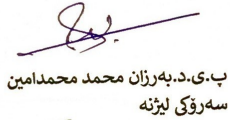 پ.ی.د.بەرزان محمد محمدامین
سەرۆکی لیژنە